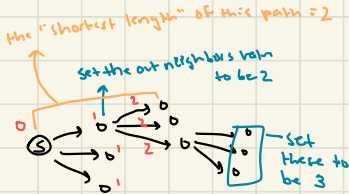 the "shortest length" of this path = 2
set the out neighbors vain
to be 2
0
1
2
2
2
S
1
1
set
these to
be 3